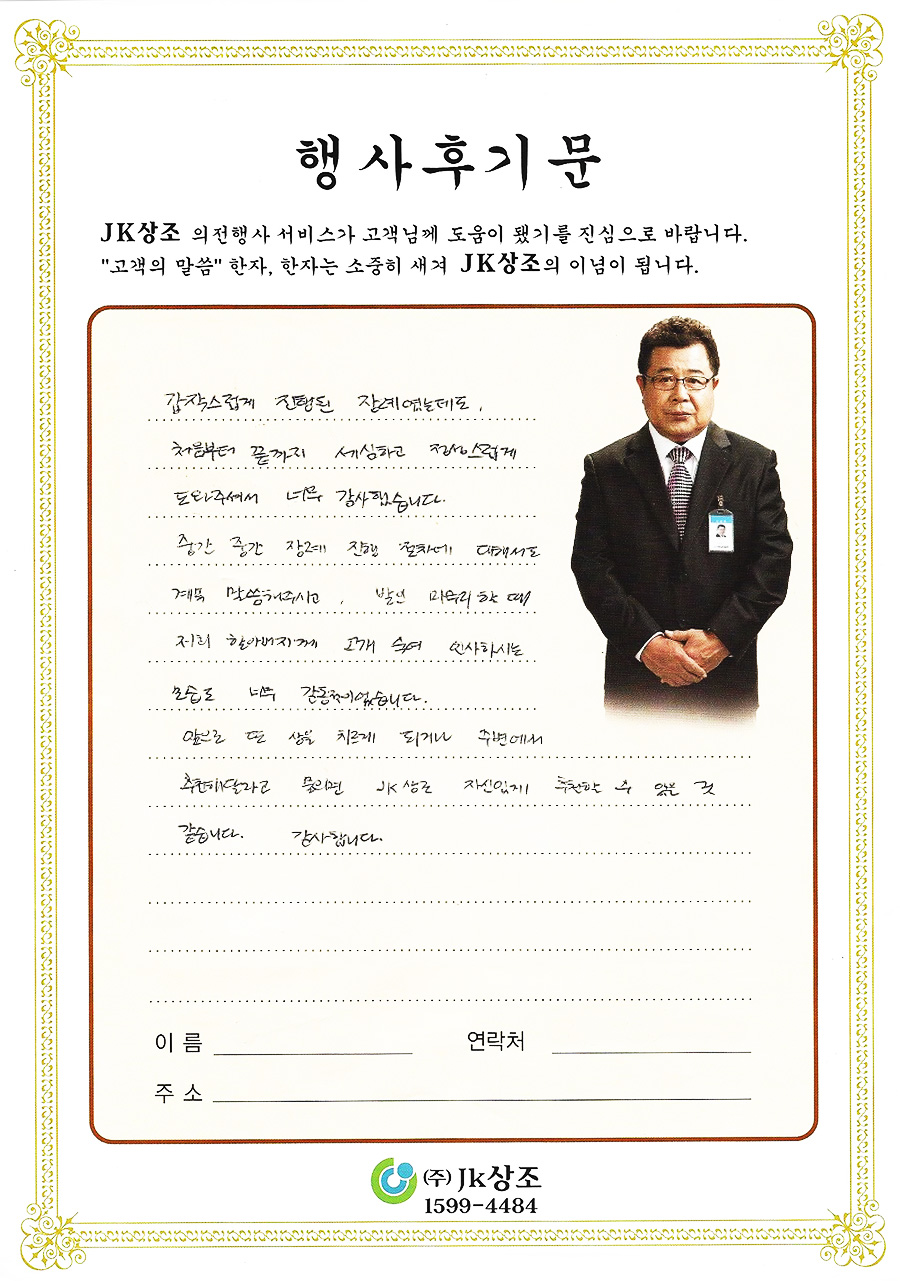 행사후기문
JK상조 의전행사 서비스가 고객님께 도움이 됐기를 진심으로 바랍니다.
"고객의 말씀" 한자, 한자는 소중히 새겨 JK상조의 이념이 됩니다.
갑작스럽게 진행된 장례였는데도,
처음부터 끝까지 세심하고 정성스럽게
도와주셔서 너무 감사했습니다.
중간 중간 장례 진행 절차에 대해서도
계속 말씀해주시고, 발인 마무리할 때
저희 할아버지께 고개 숙여 인사하시는
모습도 너무 감동적이었습니다.
앞으로 또 상을 치르게 되거나 주변에서
추천해달라고 물으면 JK상조 자신있게 추천할 수 있을 것
같습니다. 감사합니다.
이 름 연락처
주 소
(주) Jk상조
1599-4484